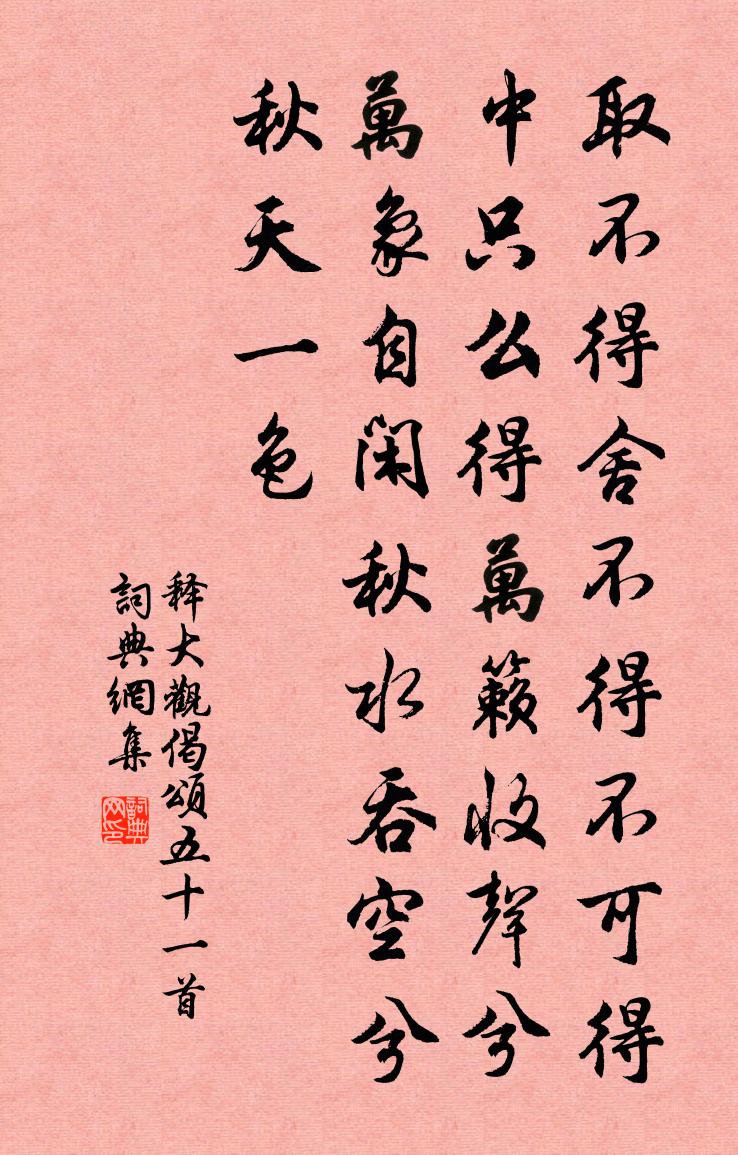 取不得舍不得不可得
中只么得萬籟收聲兮
萬象自閑秋水吞空兮
秋天一色
释大觀偈頌五十一首
詞典網集
詞典网印